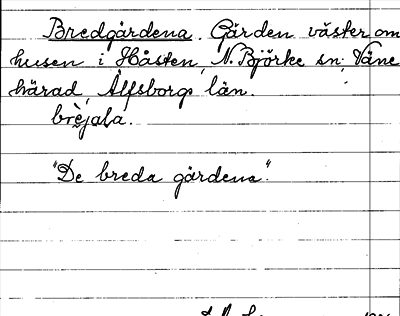 Bredgårdena. Gården väster om
husen i Håsten, N. Björke sn, Väne
härad, Älfsborgs län.
brèjaɭa.
"De breda gårdena".